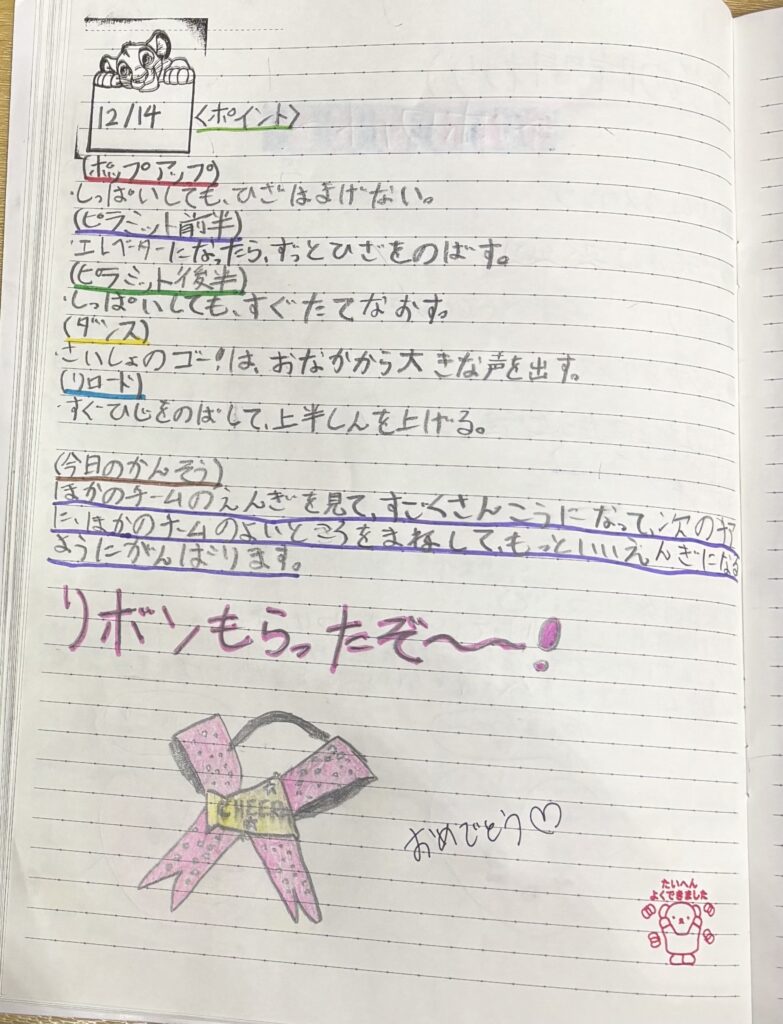 12/14 〈ポイント〉
(ポップアップ)
・しっぱいしても、ひざはまげない。
(ピラミット前半)
・エレベーターになったら、ずっとひざをのばす。
(ピラミット後半)
・しっぱいしても、すぐたてなおす。
(ダンス)
・さいしょのゴー!は、おなかから大きな声を出す。
(リロード)
・すぐひじをのばして、上半しんを上げる。
(今日のかんそう)
ほかのチームのえんぎを見て、すごくさんこうになって、次の
に、ほかのチームのよいところをま根して、もっといいえんぎになる
ようにがんばります。
リボンもらったぞ〜〜!
CHEER
おめでとう♡
たいへん
よくできました